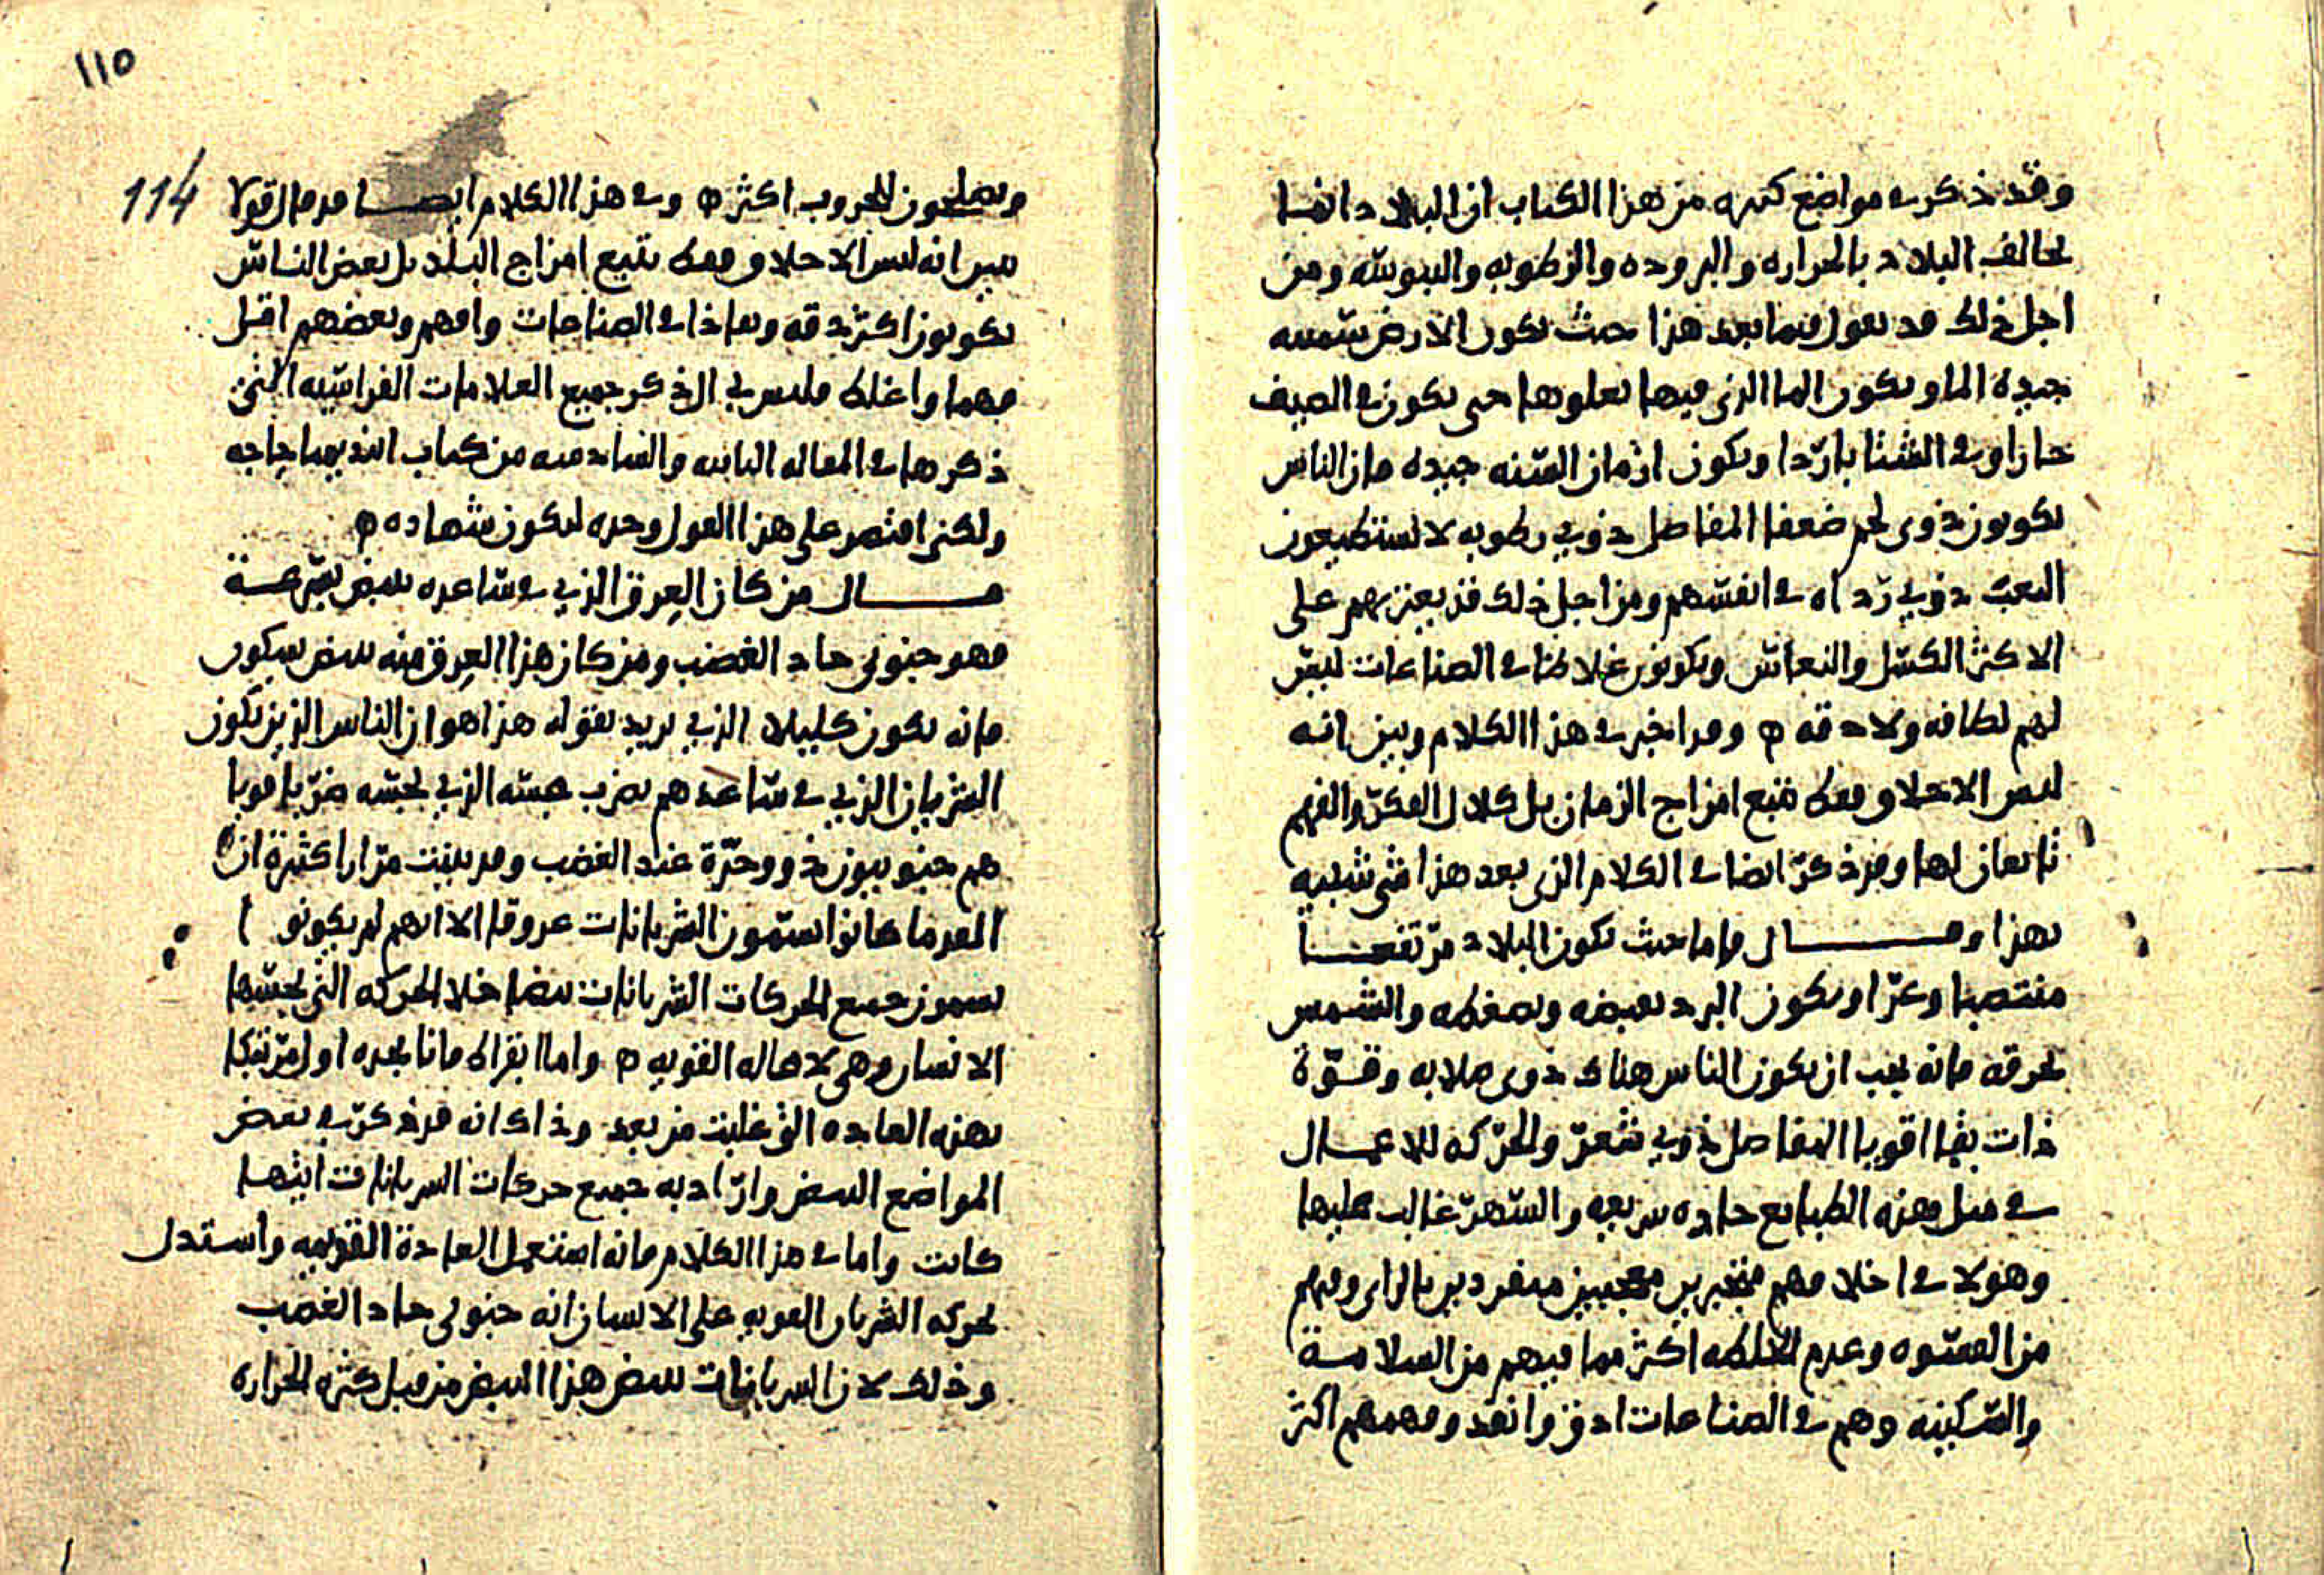 وقد ذكر في مواضع كثيره من هذا الكتاب ان البلاد دايما
تخالف البلاد بالحراره والبروده والرطوبه واليبوسه ومن
اجل ذلك قد يقول فيما بعد هذا حيث تكون الارض سمينه
جيده الماء ويكون الما الذي فيها يعلوها حتى يكون في الصيف
حارا وفي الشتا باردا ويكون ازمان السنه جيده فان الناس
يكونون ذوي لحم ضعفا المفاصل ذوي رطوبه لا يستطيعون
التعب ذوي رداه في انفسهم ومن اجل ذلك قد يعتريهم على
الاكثر الكسل والنعاس ويكونون غلاظا في الصناعات ليس
لهم لطافه ولا دقه ه وقد اخبر في هذا الكلام وبين انه
ليس الاخلاق فقط تتبع امزاج الزمان بل كلال الفكر والفهم
تابعان لها وقد ذكر ايضا في الكلام الذي بعد هذا شي شبيه
بهذا وقال فاما حيث تكون البلاد مرتفعا
منتصبا وعرا ويكون البرد يقبضه ويضغطه والشمس
تحرقه فانه يجب ان يكون الناس هناك ذوي صلابه وقوة
ذات بقا اقويا المفاصل ذوي شعر والحركه للاعمال
في مثل هذه الطبايع حاده سريعه والسهر غالب عليها
وهولا في اخلاقهم متجبرين معجبين منفردين بالراي وفيهم
من القسوه وعدم الالطه اكثر مما فيهم من السلامة
والسكينه وهم في الصناعات ادق وانفد وفهمهم اكثر
١١٥
114
ويصلحون للحروب اكثر ه وفي هذا الكلام ايضا قد قال قولا
بين انه ليس الاخلاق فقط تتبع امزاج البلد بل بعض الناس
يكونون اكثر دقه ونفاذا في الصناعات وافهم وبعضهم اقل
فهما واغلظ فليس بي الى ذكر جميع العلامات الفراسيه التي
ذكرها في المقاله الثانيه والسادسه من كتاب ابيديميا حاجه
ولكني اقتصر على هذا القول وحده ليكون شهاده ه
قال من كان العرق الذي في ساعده ينبض بسرعة
فهو جنوني حاد الغضب ومن كان هذا العرق منه ينبض بسكون
فانه يكون كليلا الذي يريد بقوله هذا هو ان الناس الذين يكون
الشريان الذي في ساعدهم يضرب جسه الذي يجسه ضربا قويا
هم جنونيون ذوو حدة عند الغضب وقد بينت مرارا كثيرة ان
القدما كانوا يسمون الشريانات عروقا الا انهم لم يكونوا
يسمون جميع الحركات الشريانات نبضا خلا الحركه التي يحسها
الانسان وهي لا محاله القويه ه واما ابقراط فانا نجده اول مرتبكا
بهذه العاده التي غلبت من بعد وذاك انه قد ذكر في بعض
المواضع النبض واراد به جميع حركات الشريانات ايتها
كانت واما في هذا الكلام فانه استعمل العادة القديمه واستدل
بحركه الشريان القويه على الانسان انه جنوني حاد الغضب
وذلك لان الشريانات تنبض هذا النبض من قبل كثره الحراره